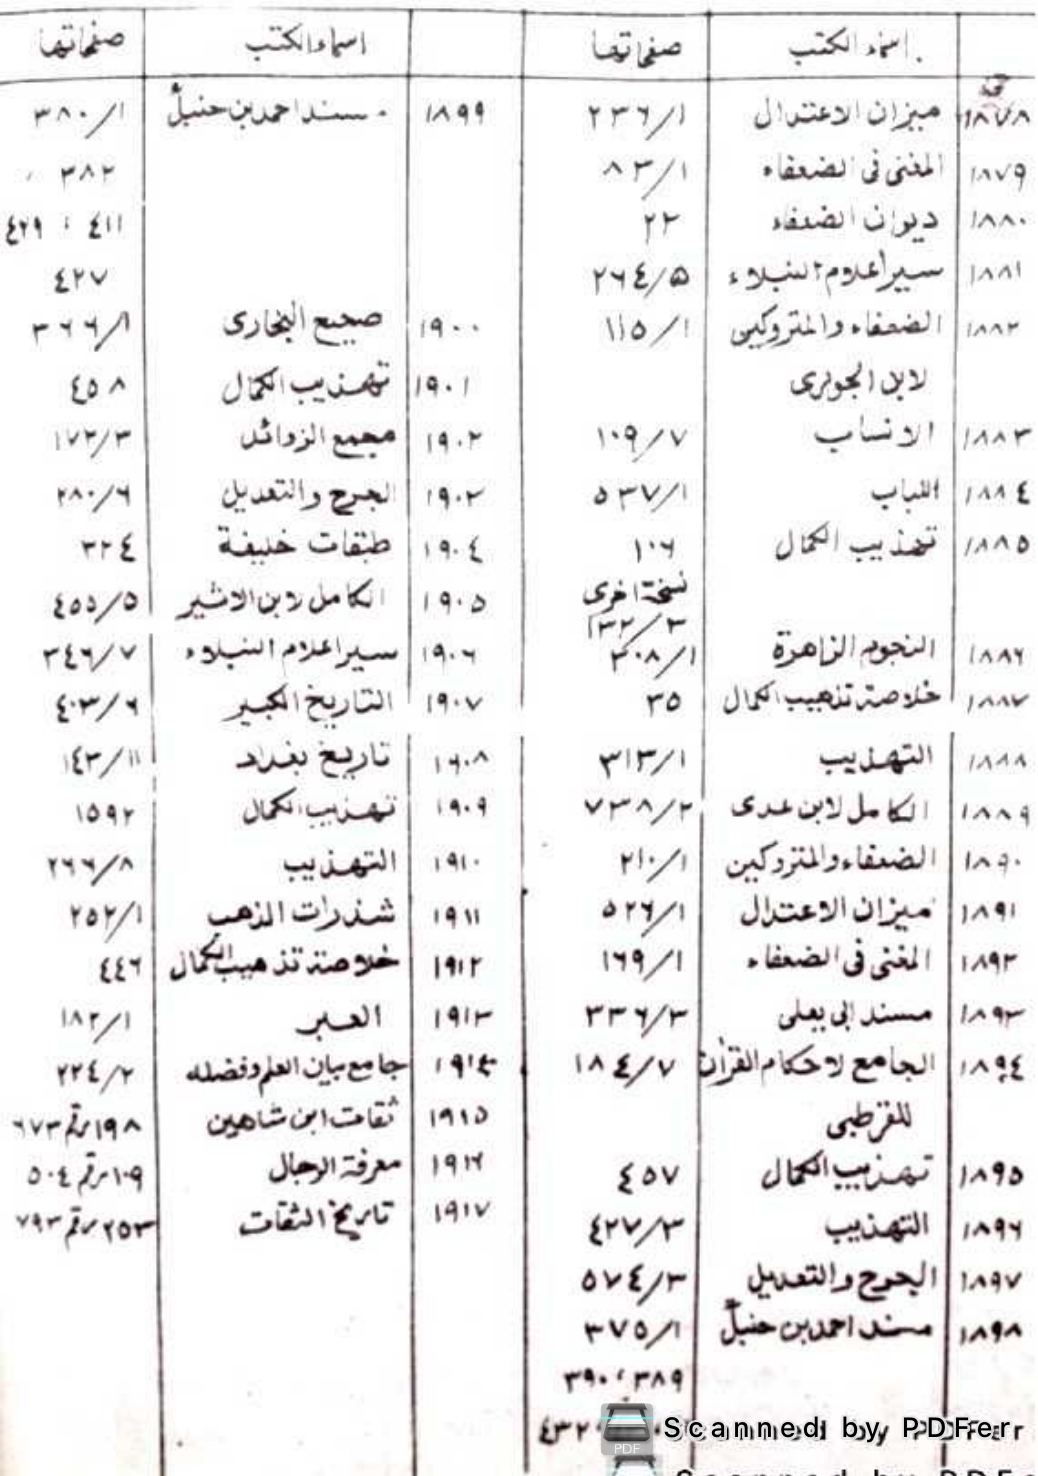 اسماء الكتب صفحاتها
١٨٧٨ ميزان الاعتدال ٢٣٦/١
١٨٧٩ المغنى فى الضعفاء ٨٣/١
١٨٨٠ ديوان الضعفاء ٢٢
١٨٨١ سير اعلام النبلاء ٢٦٤/٥
١٨٨٢ الضعفاء والمتروكين ١١٥/١
لابن الجوزى
١٨٨٣ الانساب ١٠٩/٧
١٨٨٤ اللباب ٥٣٧/١
١٨٨٥ تهذيب الكمال ١٠٦
نسخة اخرى
١٣٢/٣
١٨٨٦ النجوم الزاهرة ٣٠٨/١
١٨٨٧ خلاصة تذهيب الكمال ٣٥
١٨٨٨ التهذيب ٣١٣/١
١٨٨٩ الكامل لابن عدى ٧٣٨/٢
١٨٩٠ الضعفاء والمتروكين ٢١٠/١
١٨٩١ ميزان الاعتدال ٥٢٦/١
١٨٩٢ المغنى فى الضعفاء ١٦٩/١
١٨٩٣ مسند ابى يعلى ٣٣٦/٣
١٨٩٤ الجامع لاحكام القرآن ١٨٤/٧
للقرطبى
١٨٩٥ تهذيب الكمال ٤٥٧
١٨٩٦ التهذيب ٤٢٧/٣
١٨٩٧ الجرح والتعديل ٥٧٤/٣
١٨٩٨ مسند احمد بن حنبلؒ ٣٧٥/١
٣٨٩، ٣٩٠
٤٣٢
اسماء الكتب صفحاتها
١٨٩٩ مسند احمد بن حنبلؒ ٣٨٠/١
٣٨٢
٤١١، ٤٢٩
٤٢٧
١٩٠٠ صحيح البخارى ٣٦٦/١
١٩٠١ تهذيب الكمال ٤٥٨
١٩٠٢ مجمع الزوائد ١٧٢/٣
١٩٠٣ الجرح والتعديل ٢٨٠/٦
١٩٠٤ طبقات خليفة ٣٢٤
١٩٠٥ الكامل لابن الاثير ٤٥٥/٥
١٩٠٦ سير اعلام النبلاء ٣٤٦/٧
١٩٠٧ التاريخ الكبير ٤٠٣/٦
١٩٠٨ تاريخ بغداد ١٤٣/١١
١٩٠٩ تهذيب الكمال ١٥٩٢
١٩١٠ التهذيب ٢٦٦/٨
١٩١١ شذرات الذهب ٢٥٢/١
١٩١٢ خلاصة تذهيب الكمال ٤٤٦
١٩١٣ العبر ١٨٢/١
١٩١٤ جامع بيان العلم وفضله ٢٢٤/٢
١٩١٥ ثقات ابن شاهين ١٩٨ رقم ٦٧٣
١٩١٦ معرفة الرجال ١٠٩ رقم ٥٠٤
١٩١٧ تاريخ الثقات ٢٥٣ رقم ٧٩٣
Scanned by PDFer